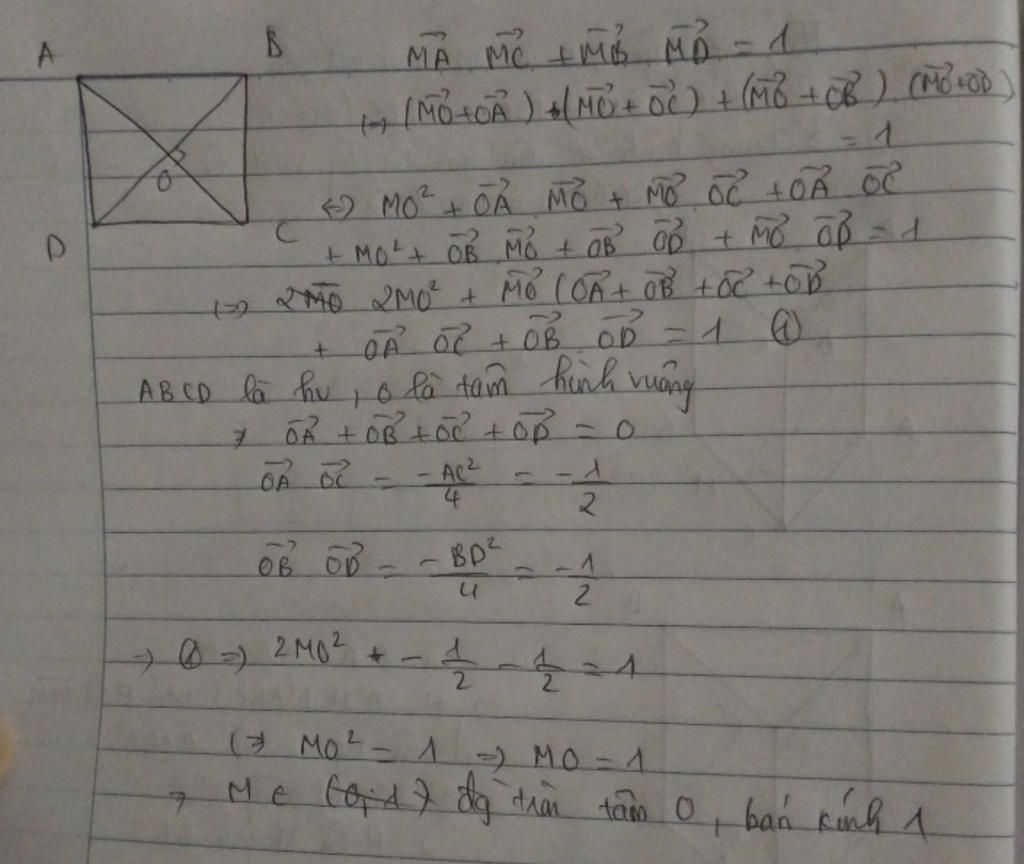 A
B
D
C
O
MA⃗ MC⃗ + MB⃗ MD⃗ = 1
(=) (MO⃗+OA⃗) (MO⃗+OC⃗) + (MO⃗+OB⃗) (MO⃗+OD⃗)
= 1
<=> MO² + OA⃗ MO⃗ + MO⃗ OC⃗ + OA⃗ OC⃗
+ MO² + OB⃗ MO⃗ + OB⃗ OD⃗ + MO⃗ OD⃗ = 1
(=) 2MO² + MO⃗ (OA⃗ + OB⃗ + OC⃗ + OD⃗
+ OA⃗ OC⃗ + OB⃗ OD⃗ = 1 ①
ABCD là hv, O là tâm hình vuông
=> OA⃗ + OB⃗ + OC⃗ + OD⃗ = 0
OA⃗ OC⃗ = -AC²/4 = -1/2
OB⃗ OD⃗ = -BD²/4 = -1/2
=> ① => 2MO² + - 1/2 - 1/2 = 1
(=> MO² = 1 => MO = 1
=> M ∈ (O; 1) đg tròn tâm O, bán kính 1